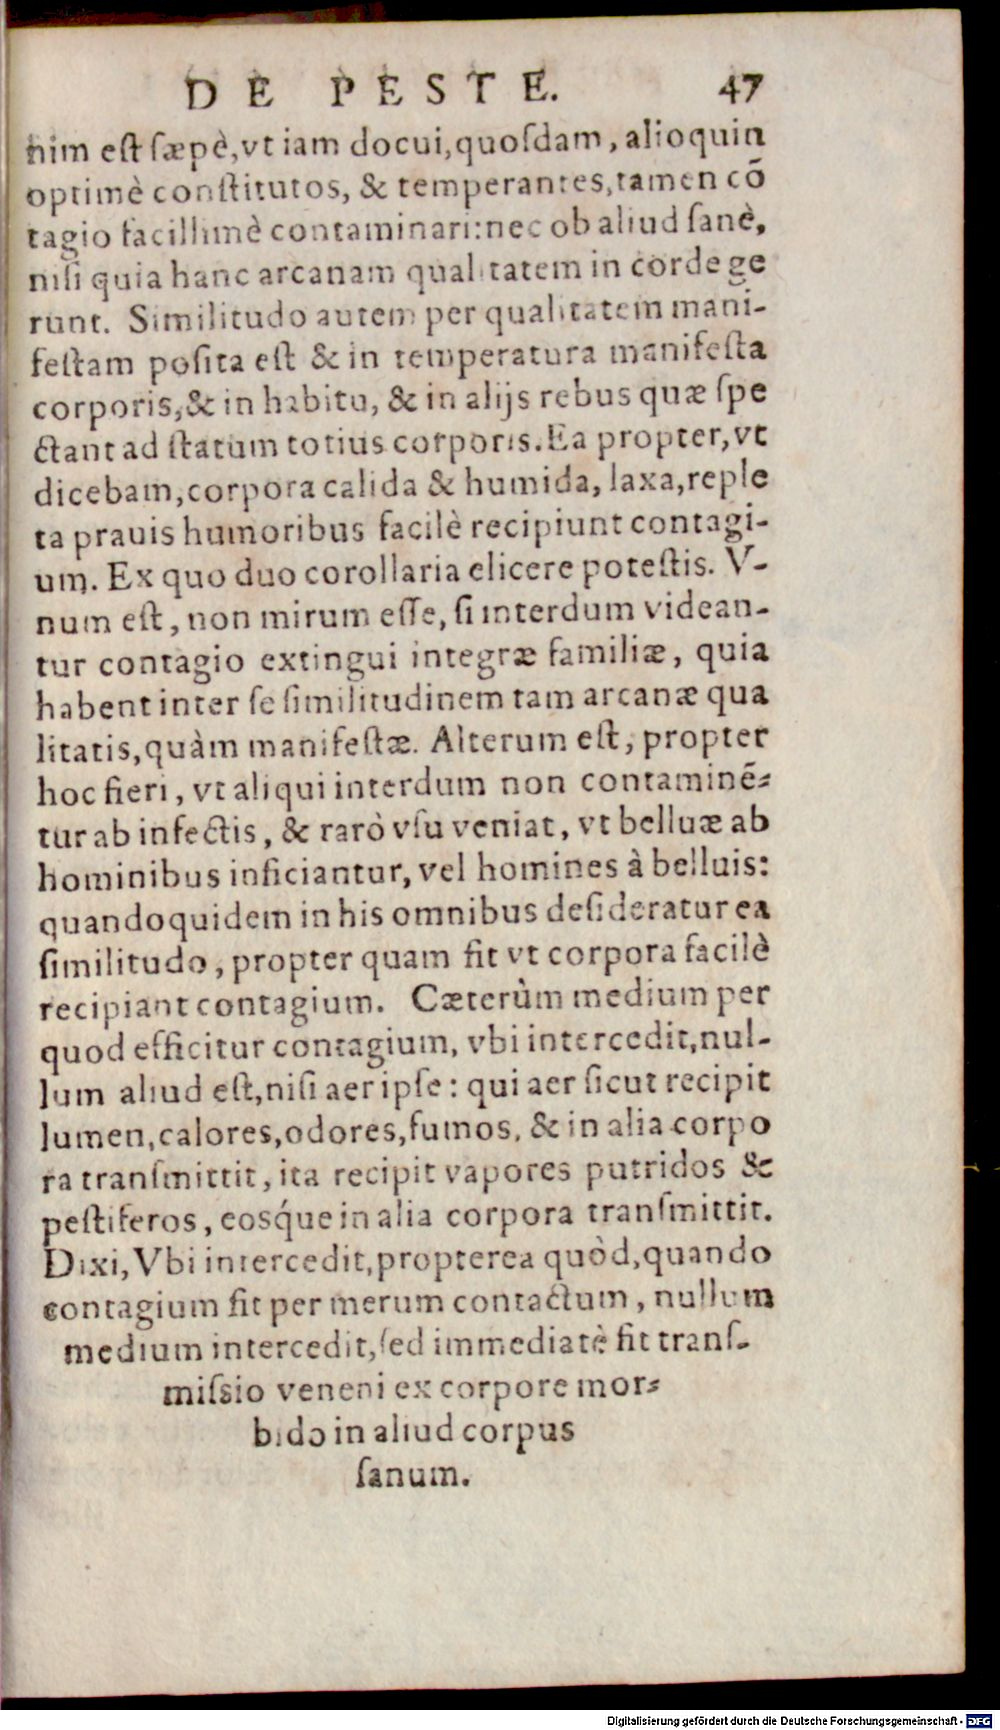 DE PESTE. 47
nim est sæpè,vt iam docui,quoſdam, alioquin
optimè constitutos, & temperantes,tamen cō
tagio facillimè contaminari:nec ob aliud ſanè,
niſi quia hanc arcanam qualitatem in corde ge
runt. Similitudo autem per qualitatem mani-
feſtam poſita eſt & in temperatura manifeſta
corporis,& in habitu, & in alijs rebus quæ ſpe
ctant ad ſtatum totius corporis.Ea propter,vt
dicebam,corpora calida & humida, laxa,reple
ta prauis humoribus facilè recipiunt contagi-
um. Ex quo duo corollaria elicere poteſtis. V-
num eſt, non mirum eſſe, ſi interdum videan-
tur contagio extingui integræ familiæ, quia
habent inter ſe ſimilitudinem tam arcanæ qua
litatis,quàm manifeſtæ. Alterum eſt, propter
hoc fieri, vt aliqui interdum non contaminē-
tur ab infectis, & rarò vſu veniat, vt belluæ ab
hominibus inficiantur, vel homines à belluis:
quandoquidem in his omnibus deſideratur ea
ſimilitudo, propter quam fit vt corpora facilè
recipiant contagium. Cæterùm medium per
quod efficitur contagium, vbi intercedit,nul-
lum aliud eſt,niſi aer ipſe: qui aer ſicut recipit
lumen,calores,odores,fumos, & in alia corpo
ra tranſmittit, ita recipit vapores putridos &
peſtiferos, eosq́ue in alia corpora tranſmittit.
Dixi, Vbi intercedit,propterea quòd,quando
contagium fit per merum contactum, nullum
medium intercedit,ſed immediatè fit tranſ-
miſsio veneni ex corpore mor-
bido in aliud corpus
ſanum.
Digitalisierung gefördert durch die Deutsche Forschungsgemeinschaft - DFG